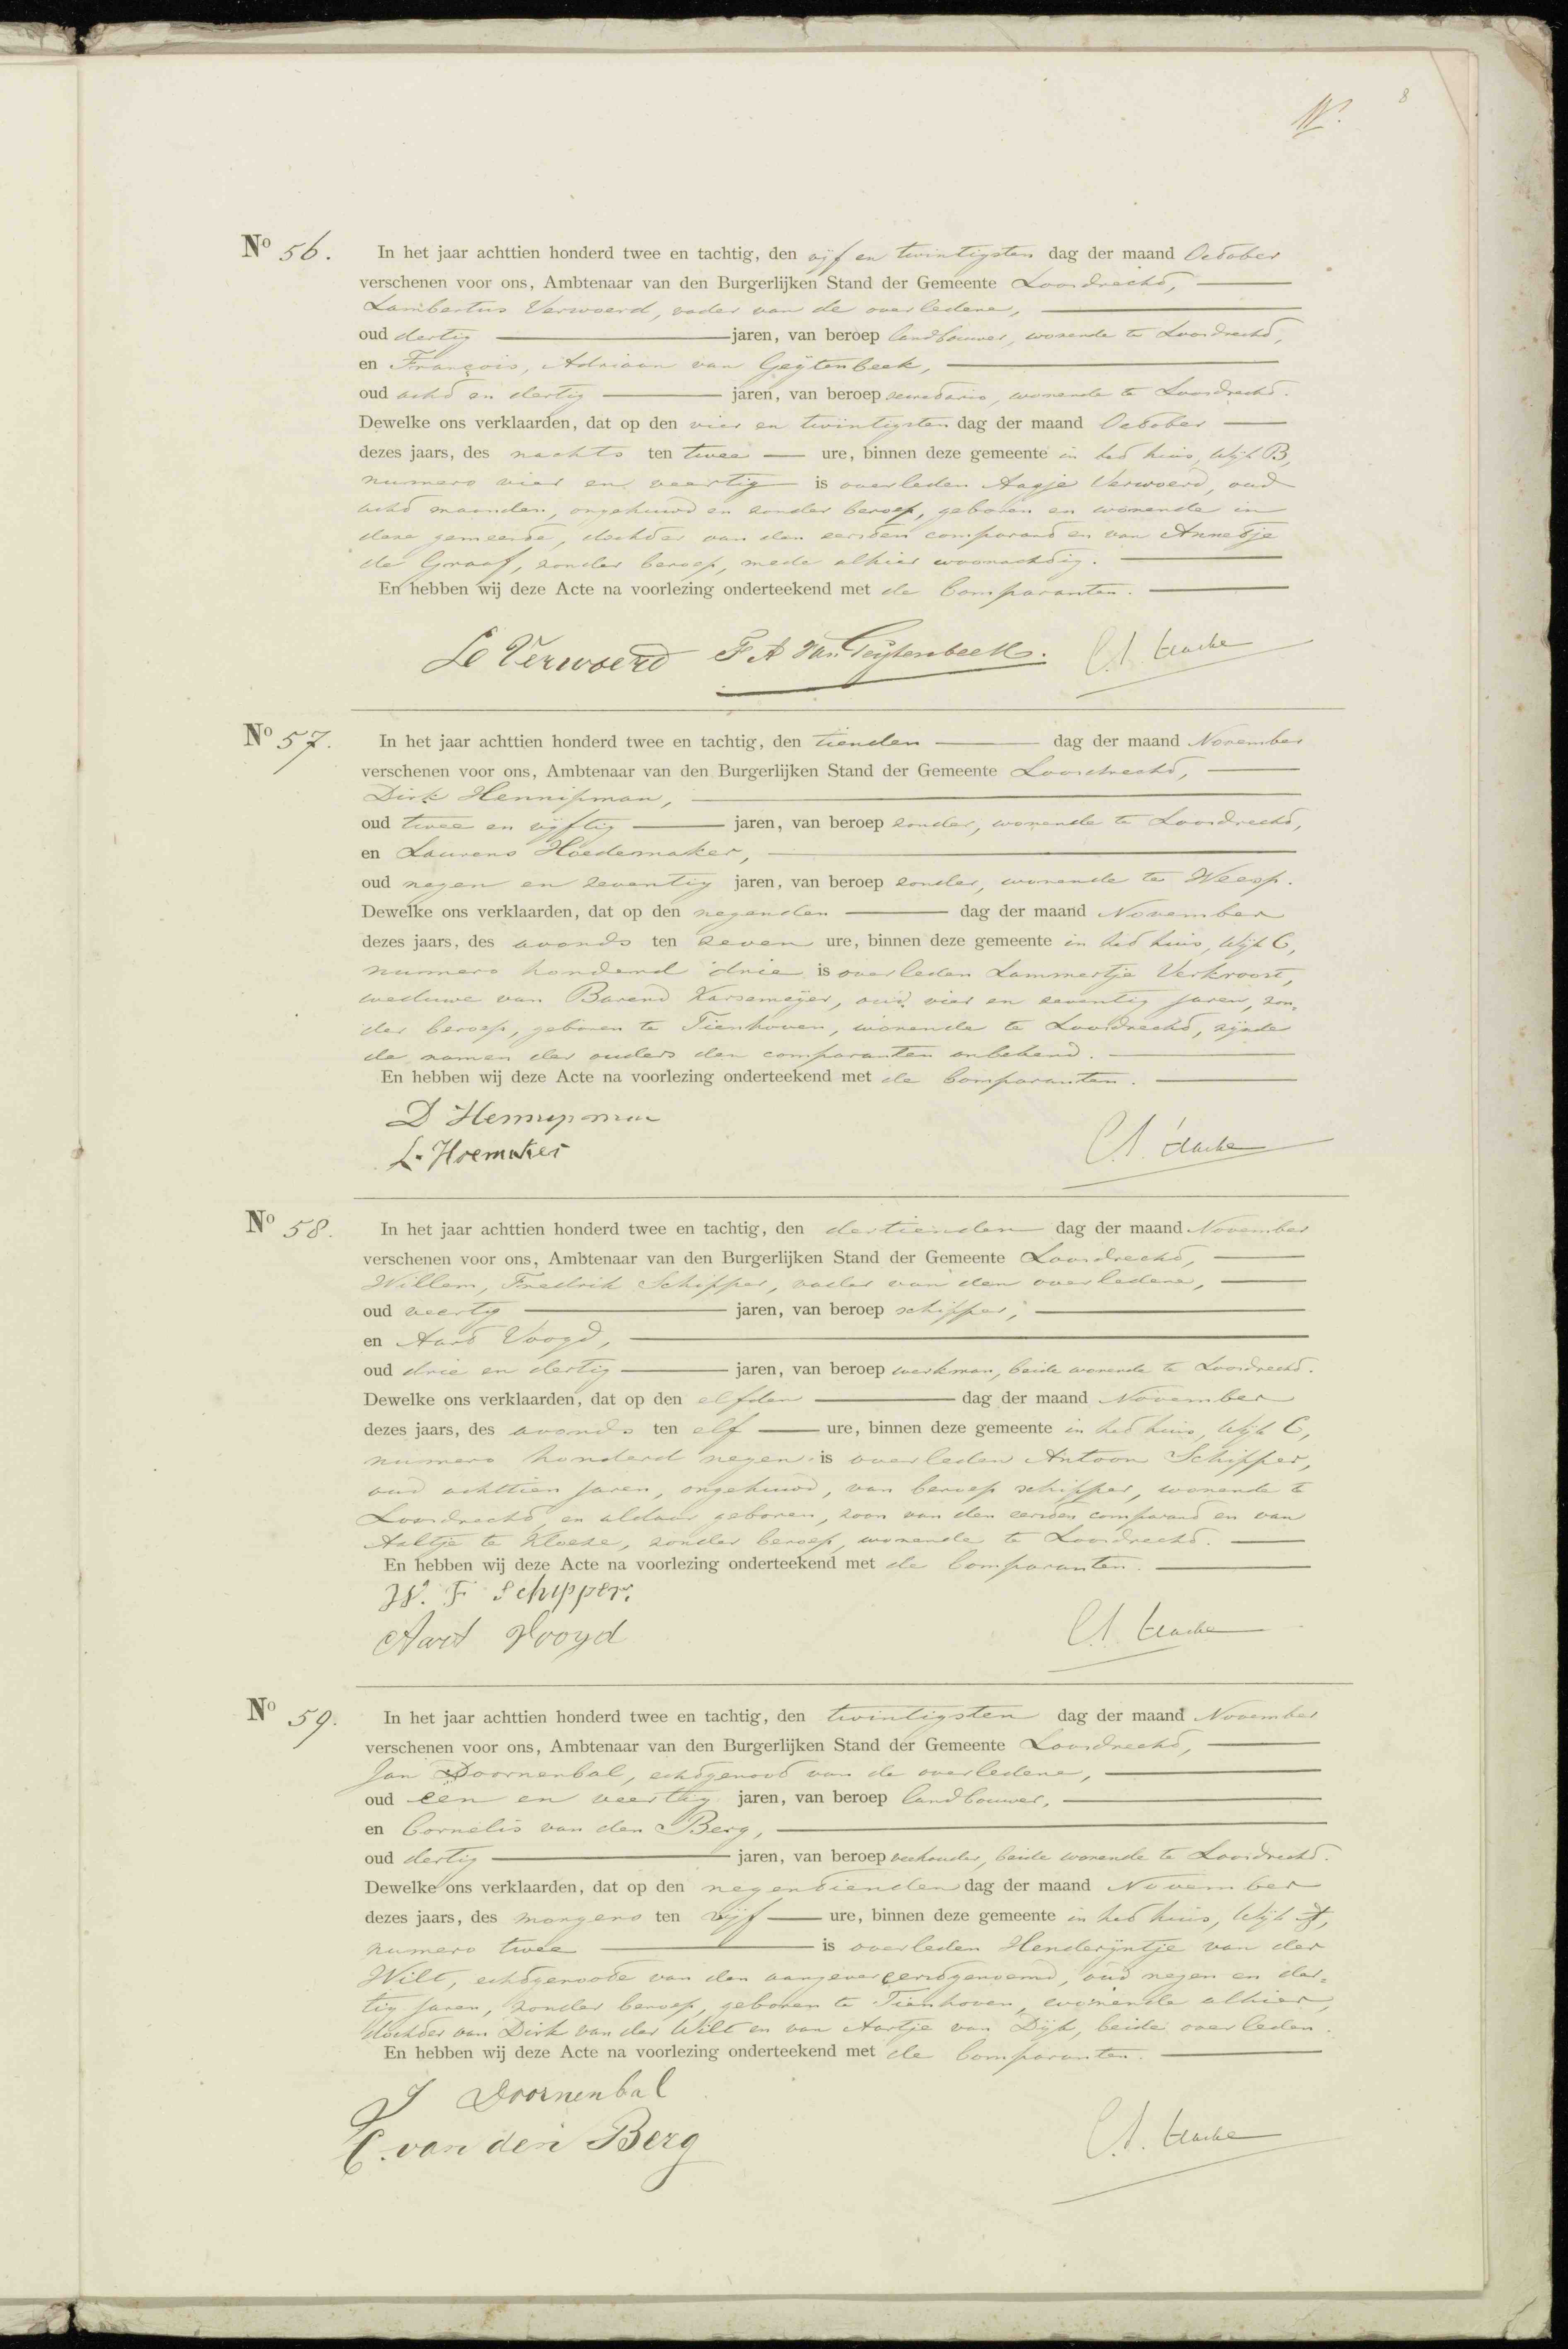 8
Nº 56. In het jaar achttien honderd twee en tachtig, den vijf en twintigsten dag der maand October
verschenen voor ons, Ambtenaar van den Burgerlijken Stand der Gemeente Loosdrecht,
Lambertus Verwoerd, vader van de overledene,
oud dertig jaren, van beroep landbouwer, wonende te Loosdrecht,
en François, Adriaan van Geijtenbeek,
oud acht en dertig jaren, van beroep secretaris, wonende te Loosdrecht.
Dewelke ons verklaarden, dat op den vier en twintigsten dag der maand October
dezes jaars, des nachts ten twee ure, binnen deze gemeente in het huis, Wijk B,
numero vier en veertig is overleden Aagje Verwoerd, oud
acht maanden, ongehuwd en zonder beroep, geboren en wonende in
deze gemeente, dochter van den eersten comparant en van Annetje
de Graaf, zonder beroep, mede alhier woonachtig.
En hebben wij deze Acte na voorlezing onderteekend met de Comparanten.
Le Verwoerd F A Van Geijtenbeek.
Nº 57. In het jaar achttien honderd twee en tachtig, den tienden dag der maand November
verschenen voor ons, Ambtenaar van den Burgerlijken Stand der Gemeente Loosdrecht,
Dirk Hennipman,
oud twee en vijftig jaren, van beroep zonder, wonende te Loosdrecht,
en Laurens Hoedemaker,
oud negen en zeventig jaren, van beroep zonder, wonende te Weesp.
Dewelke ons verklaarden, dat op den negenden dag der maand November
dezes jaars, des avonds ten zeven ure, binnen deze gemeente in het huis, Wijk C,
numero honderd drie is overleden Lammertje Verkroost,
weduwe van Barend Karsemeijer, oud vier en zeventig jaren, zon-
der beroep, geboren te Tienhoven, wonende te Loosdrecht, zijnde
de namen der ouders den comparanten onbekend.
En hebben wij deze Acte na voorlezing onderteekend met de Comparanten.
D Hennipman
L. Hoemaker
Nº 58. In het jaar achttien honderd twee en tachtig, den dertienden dag der maand November
verschenen voor ons, Ambtenaar van den Burgerlijken Stand der Gemeente Loosdrecht,
Willem, Fredrik Schipper, vader van den overledene,
oud veertig jaren, van beroep schipper,
en Aart Voogd,
oud drie en dertig jaren, van beroep werkman, beide wonende te Loosdrecht.
Dewelke ons verklaarden, dat op den elfden dag der maand November
dezes jaars, des avonds ten elf ure, binnen deze gemeente in het huis, Wijk C,
numero honderd negen is overleden Antoon Schipper,
oud achttien jaren, ongehuwd, van beroep schipper, wonende te
Loosdrecht en aldaar geboren, zoon van den eersten comparant en van
Aaltje te Kloeze, zonder beroep, wonende te Loosdrecht.
En hebben wij deze Acte na voorlezing onderteekend met de Comparanten.
W. F Schipper.
Aart Voogd
Nº 59. In het jaar achttien honderd twee en tachtig, den twintigsten dag der maand November
verschenen voor ons, Ambtenaar van den Burgerlijken Stand der Gemeente Loosdrecht,
Jan Doornenbal, echtgenoot van de overledene,
oud een en veertig jaren, van beroep landbouwer,
en Cornelis van den Berg,
oud dertig jaren, van beroep veehouder, beide wonende te Loosdrecht.
Dewelke ons verklaarden, dat op den negentienden dag der maand November
dezes jaars, des morgens ten vijf ure, binnen deze gemeente in het huis, Wijk A,
numero twee is overleden Henderijntje van der
Wilt, echtgenoote van den aangever eerstgenoemd, oud negen en der-
tig jaren, zonder beroep, geboren te Tienhoven, wonende alhier,
dochter van Dirk van der Wilt en van Aartje van Dijk, beide overleden.
En hebben wij deze Acte na voorlezing onderteekend met de Comparanten.
J Doornenbal
C. van den Berg